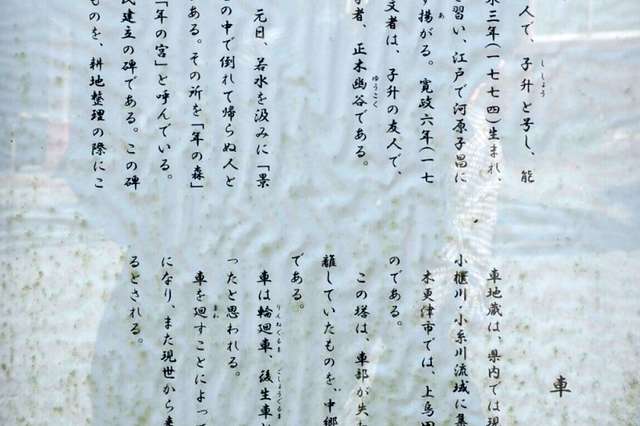 人で、子升と号し、能
ししょう
永三年(一七七四)生まれ、
習い、江戸で河原子昌に
す揚がる。寛政六年(一七
あ
文者は、子升の友人で、
者、正木幽谷である。
ゆうこく
元日、若水を汲みに「景
の中で倒れて帰らぬ人と
ある。その所を「年の森」
「年の宮」と呼んでいる。
民建立の碑である。この碑
ものを、耕地整理の際にこ
車
車地蔵は、県内では現
小櫃川・小糸川流域に集
木更津市では、上烏田
のである。
この塔は、車部が失
離していたものを、中郷
である。
車は輪廻車、後生車
りんねぐるま
ごしょうぐるま
ったと思われる。
車を廻すことによって
まわ
になり、また現世から
るとされる。